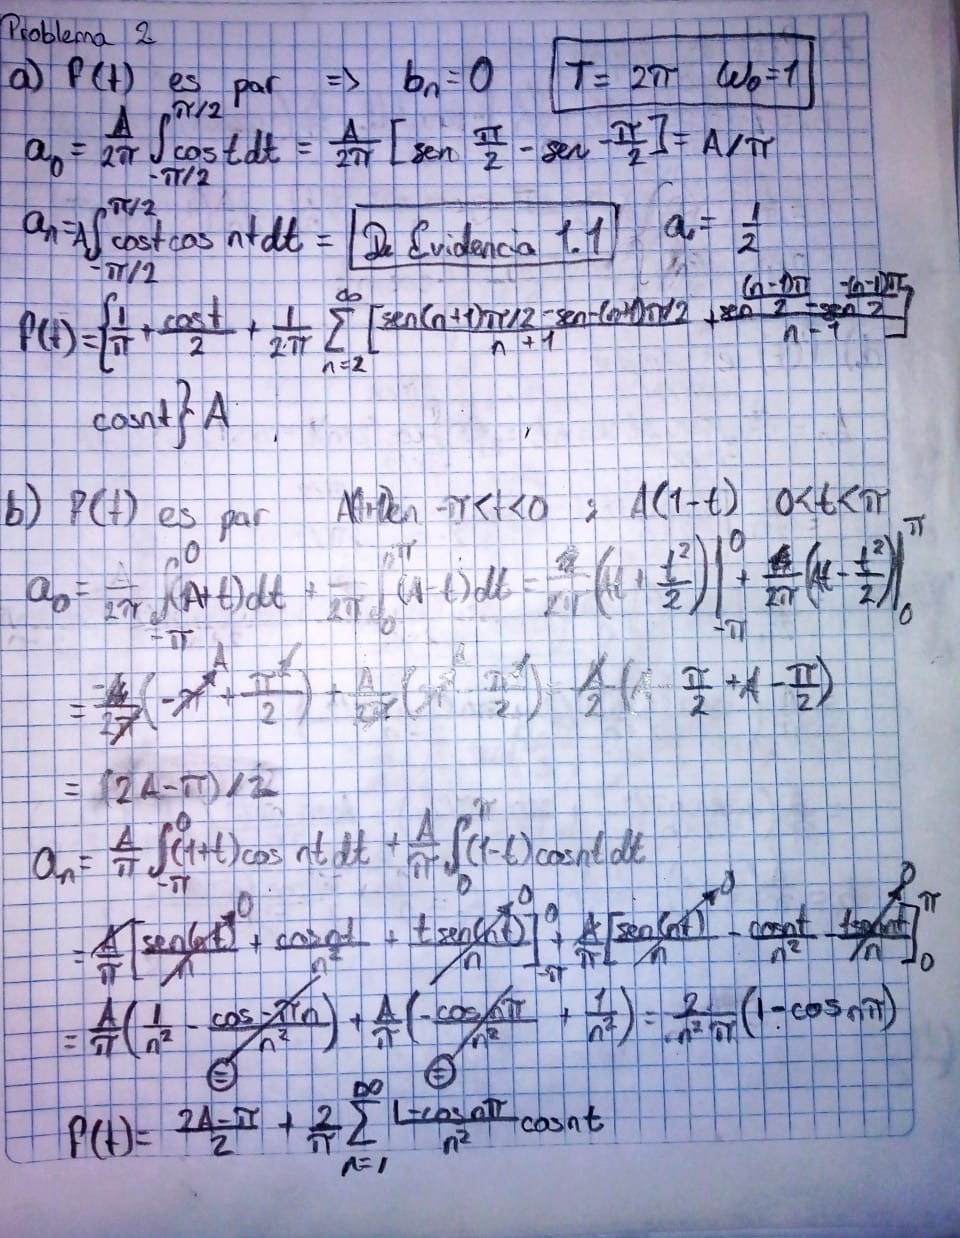 Problema 2
a) P(t) es par => bₙ=0 T= 2π ω₀=1
a₀ = A/2π ∫_{-π/2}^{π/2} cos t dt = A/2π [sen π/2 - sen -π/2] = A/π
aₙ = A∫_{-π/2}^{π/2} cost cos nt dt = De Evidencia 1.1 a₁ = 1/2
P(t) = {1/π + cos t/2 + 1/2π ∑_{n=2}^{∞} [sen(n+1)π/2 - sen-(n+1)π/2 / n+1 + sen (n-1)π/2 - sen -(n-1)π/2 / n-1]
cosnt} A
b) P(t) es par en -π<t<0 ; A(1-t) 0<t<π
a₀ = /2π ∫_{-π}^{0} (A+t)dt + /2π ∫_{0}^{π} (A-t)dt = /2π (At + t²/2)|_{-π}^{0} + /2π (At - t²/2)|_{0}^{π}
= /2π (-π A + π²/2) + /2π (π - π²/2) = /2 (A - π/2 + A - π/2)
= (2A-π)/2
aₙ = A/π ∫_{-π}^{0} (1+t)cos nt dt + A/π ∫_{0}^{π} (1-t)cosnt dt
= A/π [sen(nt)/n → 0 + cosnt/n² + t sen(nt)/n → 0]_{-π}^{0} + A/π [sen(nt)/n → 0 - cosnt/n² - tsennt/n → 0]_{0}^{π}
= A/π (1/n² - cos -πn/n²) + A/π (-cos nπ/n² + 1/n²) = 2/n²π (1-cosnπ)
= =
P(t) = 2A-π/2 + 2/π ∑_{n=1}^{∞} 1-cosnπ/n² cosnt